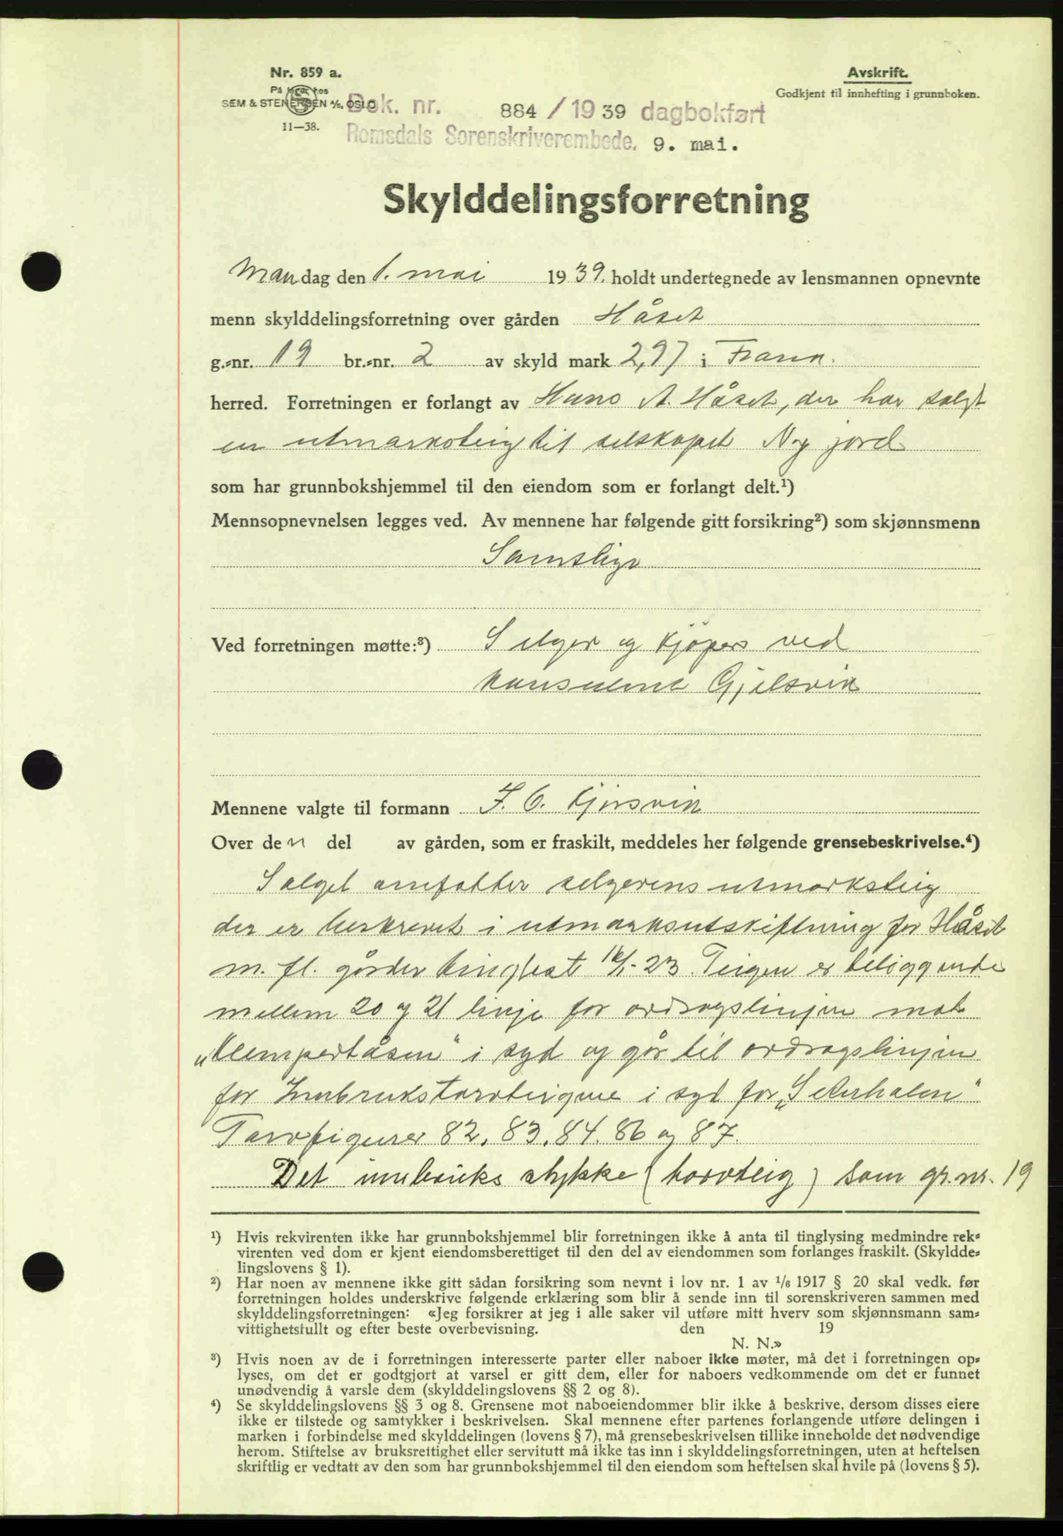 Nr. 859 a.
På lager hos
SEM & STENERSEN A/S, OSLO
11—38.
Avskrift.
Godkjent til innhefting i grunnboken.
Dok. nr. 884 / 1939 dagbokført
Romsdals Sorenskriverembede. 9. mai.
Skylddelingsforretning
Mandag den 1. mai 1939. holdt undertegnede av lensmannen opnevnte
menn skylddelingsforretning over gården Håset
g.-nr. 19 br.-nr. 2 av skyld mark 2,97 i Fræna.
herred. Forretningen er forlangt av Hans A. Håset, der har solgt
en utmarksteig til selskapet Ny jord
som har grunnbokshjemmel til den eiendom som er forlangt delt.¹)
Mennsopnevnelsen legges ved. Av mennene har følgende gitt forsikring²) som skjønnsmenn
Samtlige
Ved forretningen møtte:³) Selger og kjöpers ved
konsulent Gjelsvik
Mennene valgte til formann F. O. Kjörsvik
Over den del av gården, som er fraskilt, meddeles her følgende grensebeskrivelse.⁴)
Salget omfatter selgerens utmarksteig
der er beskrevet i utmarksutskiftning for Håset
m. fl. gårder tinglyst 16/1-23. Teigen er beliggende
mellem 20 og 21 linje for ordragslinjen mot
„Klempertåsen" i syd og går til ordragslinjen
for Innbrukstorvteigene i syd for „Seterhalen"
Torvfigurer 82, 83, 84. 86 og 87.
Det innbruks stykke (torvteig) som gr. nr. 19
¹) Hvis rekvirenten ikke har grunnbokshjemmel blir forretningen ikke å anta til tinglysing medmindre rek-
virenten ved dom er kjent eiendomsberettiget til den del av eiendommen som forlanges fraskilt. (Skyldde-
lingslovens § 1).
²) Har noen av mennene ikke gitt sådan forsikring som nevnt i lov nr. 1 av 1/6 1917 § 20 skal vedk. før
forretningen holdes underskrive følgende erklæring som blir å sende inn til sorenskriveren sammen med
skylddelingsforretningen: «Jeg forsikrer at jeg i alle saker vil utføre mitt hverv som skjønnsmann sam-
vittighetsfullt og efter beste overbevisning. den 19
N. N.»
³) Hvis noen av de i forretningen interesserte parter eller naboer ikke møter, må det i forretningen op-
lyses, om det er godtgjort at varsel er gitt dem, eller for naboers vedkommende om det er funnet
unødvendig å varsle dem (skylddelingslovens §§ 2 og 8).
⁴) Se skylddelingslovens §§ 3 og 8. Grensene mot naboeiendommer blir ikke å beskrive, dersom disses eiere
ikke er tilstede og samtykker i beskrivelsen. Skal mennene efter partenes forlangende utføre delingen i
marken i forbindelse med skylddelingen (lovens § 7), må grensebeskrivelsen tillike inneholde det nødvendige
herom. Stiftelse av bruksrettighet eller servitutt må ikke tas inn i skylddelingsforretningen, uten at heftelsen
skriftlig er vedtatt av den som har grunnbokshjemmel til den eiendom som heftelsen skal hvile på (lovens § 5).